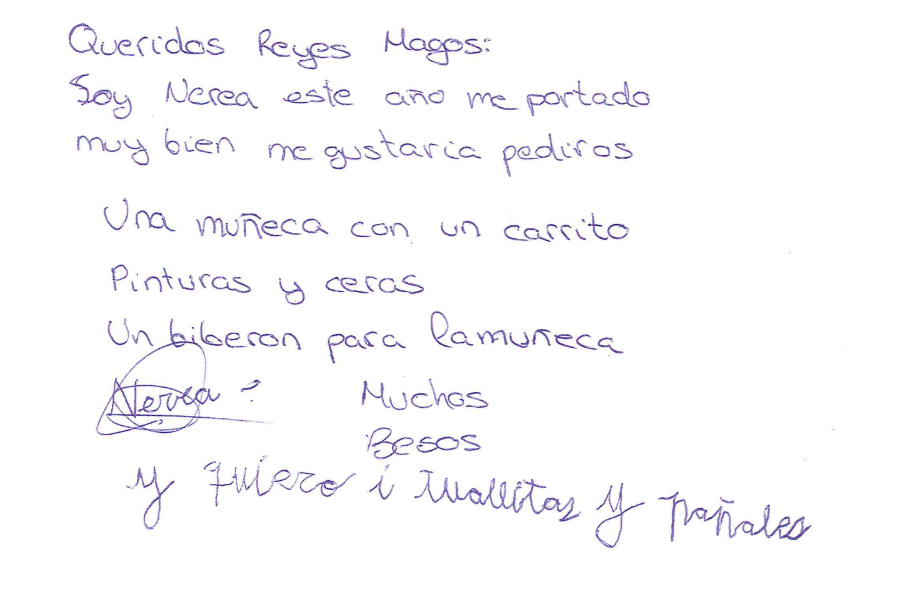 Queridos Reyes Magos:
Soy Nerea este año me portado
muy bien me gustaria pediros
Una muñeca con un carrito
Pinturas y ceras
Un biberon para lamuñeca
Nerea
Muchos
Besos
y quiero i tuallitas y pañales